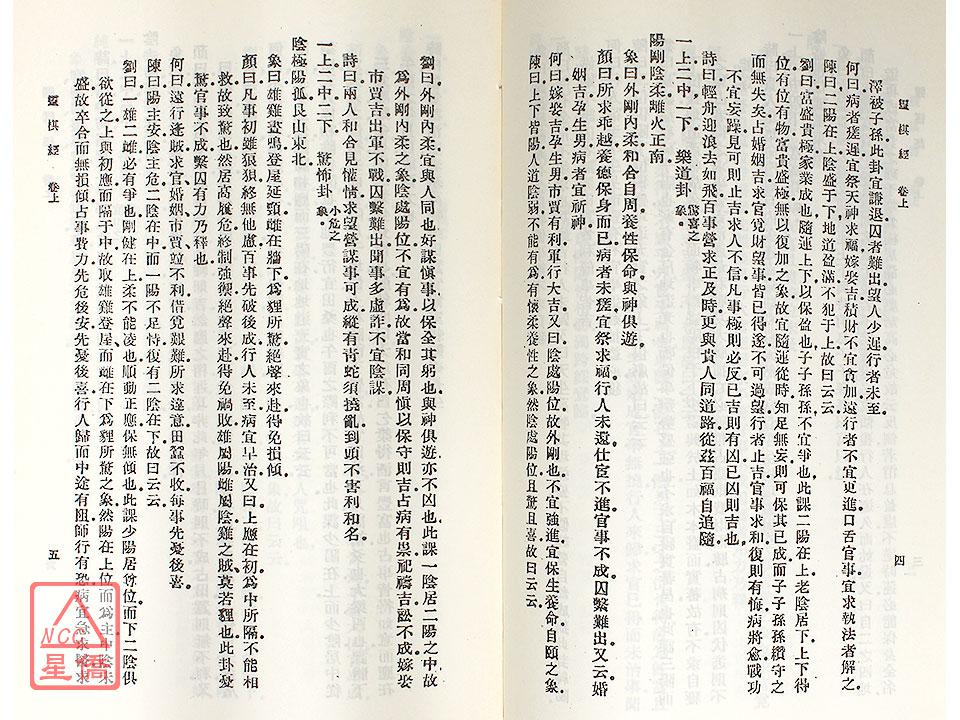 靈棋經 卷上
四
澤被子孫此卦宜謙退囚者難出望人少遲行者未至
何曰病者瘥遲宜祭天神求福嫁娶吉積財不宜貪加遠行者不宜更進口舌官事宜求執法者解之
陳曰二陽在上陰盛于下地道盈滿不犯于上故曰云云
劉曰富盛貴極家業成也隨運上下以保盈也子子孫孫不宜爭也此課二陽在上老陰居下上下得
位有位有物富貴盛極無以復加之象故宜隨運從時知足無妄則可保其已成而子子孫孫纘守之
而無失矣占婚姻吉求官覓財望事皆已得遂不可過望行者止吉官事求和復則有悔病將愈戰功
不宜妄躁見可則止吉求人不信凡事極則必反已吉則有凶已凶則吉也
詩曰輕舟迎浪去如飛百事營求正及時更與貴人同道路從茲百福自追隨
一上二中一下 樂道卦 驚喜之象
陽剛陰柔離火正南
象曰外剛內柔和合自周養性保命與神俱遊
顏曰所求乖越養德保身而已病者未瘥宜祭求福行人未還仕宦不進官事不成囚繫難出又云婚
姻吉孕生男病者宜祈神
何曰嫁娶吉孕生男市賈有利軍行大吉又曰陰處陽位故外剛也不宜強進宜保生養命自頤之象
陳曰上下皆陽人道陰弱不能有為有懷柔養性之象然陰處陽位且驚且喜故曰云云
劉曰外剛內柔宜與人同也好謀慎事以保全其躬也與神俱遊亦不凶也此課一陰居二陽之中故
為外剛內柔之象陰處陽位不宜有為故當和同周慎以保守則吉占病有祟祀禱吉訟不成嫁娶
市賈吉出軍不戰囚繫難出聞事多虛詐不宜陰謀
詩曰兩人和合見懽情求望營謀事可成縱有青蛇須撓亂到頭不害利和名
一上二中二下 驚怖卦 小危之象
陰極陽孤艮山東北
象曰雄雞盡鳴登屋延頸雌在牆下為狸所驚絕聲來赴得免損傾
顏曰凡事初雖狼狽終無他慮百事先破後成行人未至病宜早治又曰上應在初為中所隔不能相
救故致驚也然居高履危終制強禦絕聲來赴得免禍敗雄屬陽雌屬陰雞之賊莫若狸也此卦憂
驚官事不成繫囚有力乃釋也
何曰遠行逢賊求官婚姻市賈竝不利借覓艱難所求違意田蠶不收每事先憂後喜
陳曰陽主安陰主危二陰在中而一陽不足恃復有二陰在下故曰云云
劉曰一雄二雌必有爭也剛健在上柔不能凌也順動正應保無傾也此課少陽居尊位而下二陰俱
欲從之上與初應而隔于中故取雄雞登屋而雌在下為狸所驚之象然陽在上位而為主中陰未
盛故卒合而無損傾占事費力先危後安先憂後喜行人歸而中途有阻師行有恐病宜急求醫求
靈棋經 卷上
五
NCC
星僑